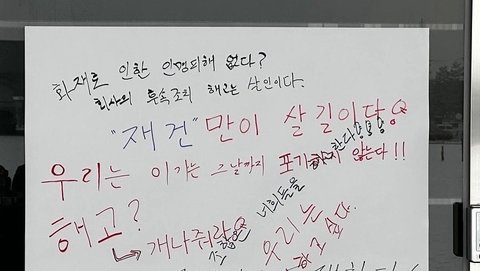 화재로 인한 인명피해 없다?
회사의 후속조치 해고는 살인이다.
"재건"만이 살 길이다!
우리는 이기는 그날까지 포기하지 않는다!!
한다!!!
해고?
개나줘라
너희들을
우리는
하고 싶다.